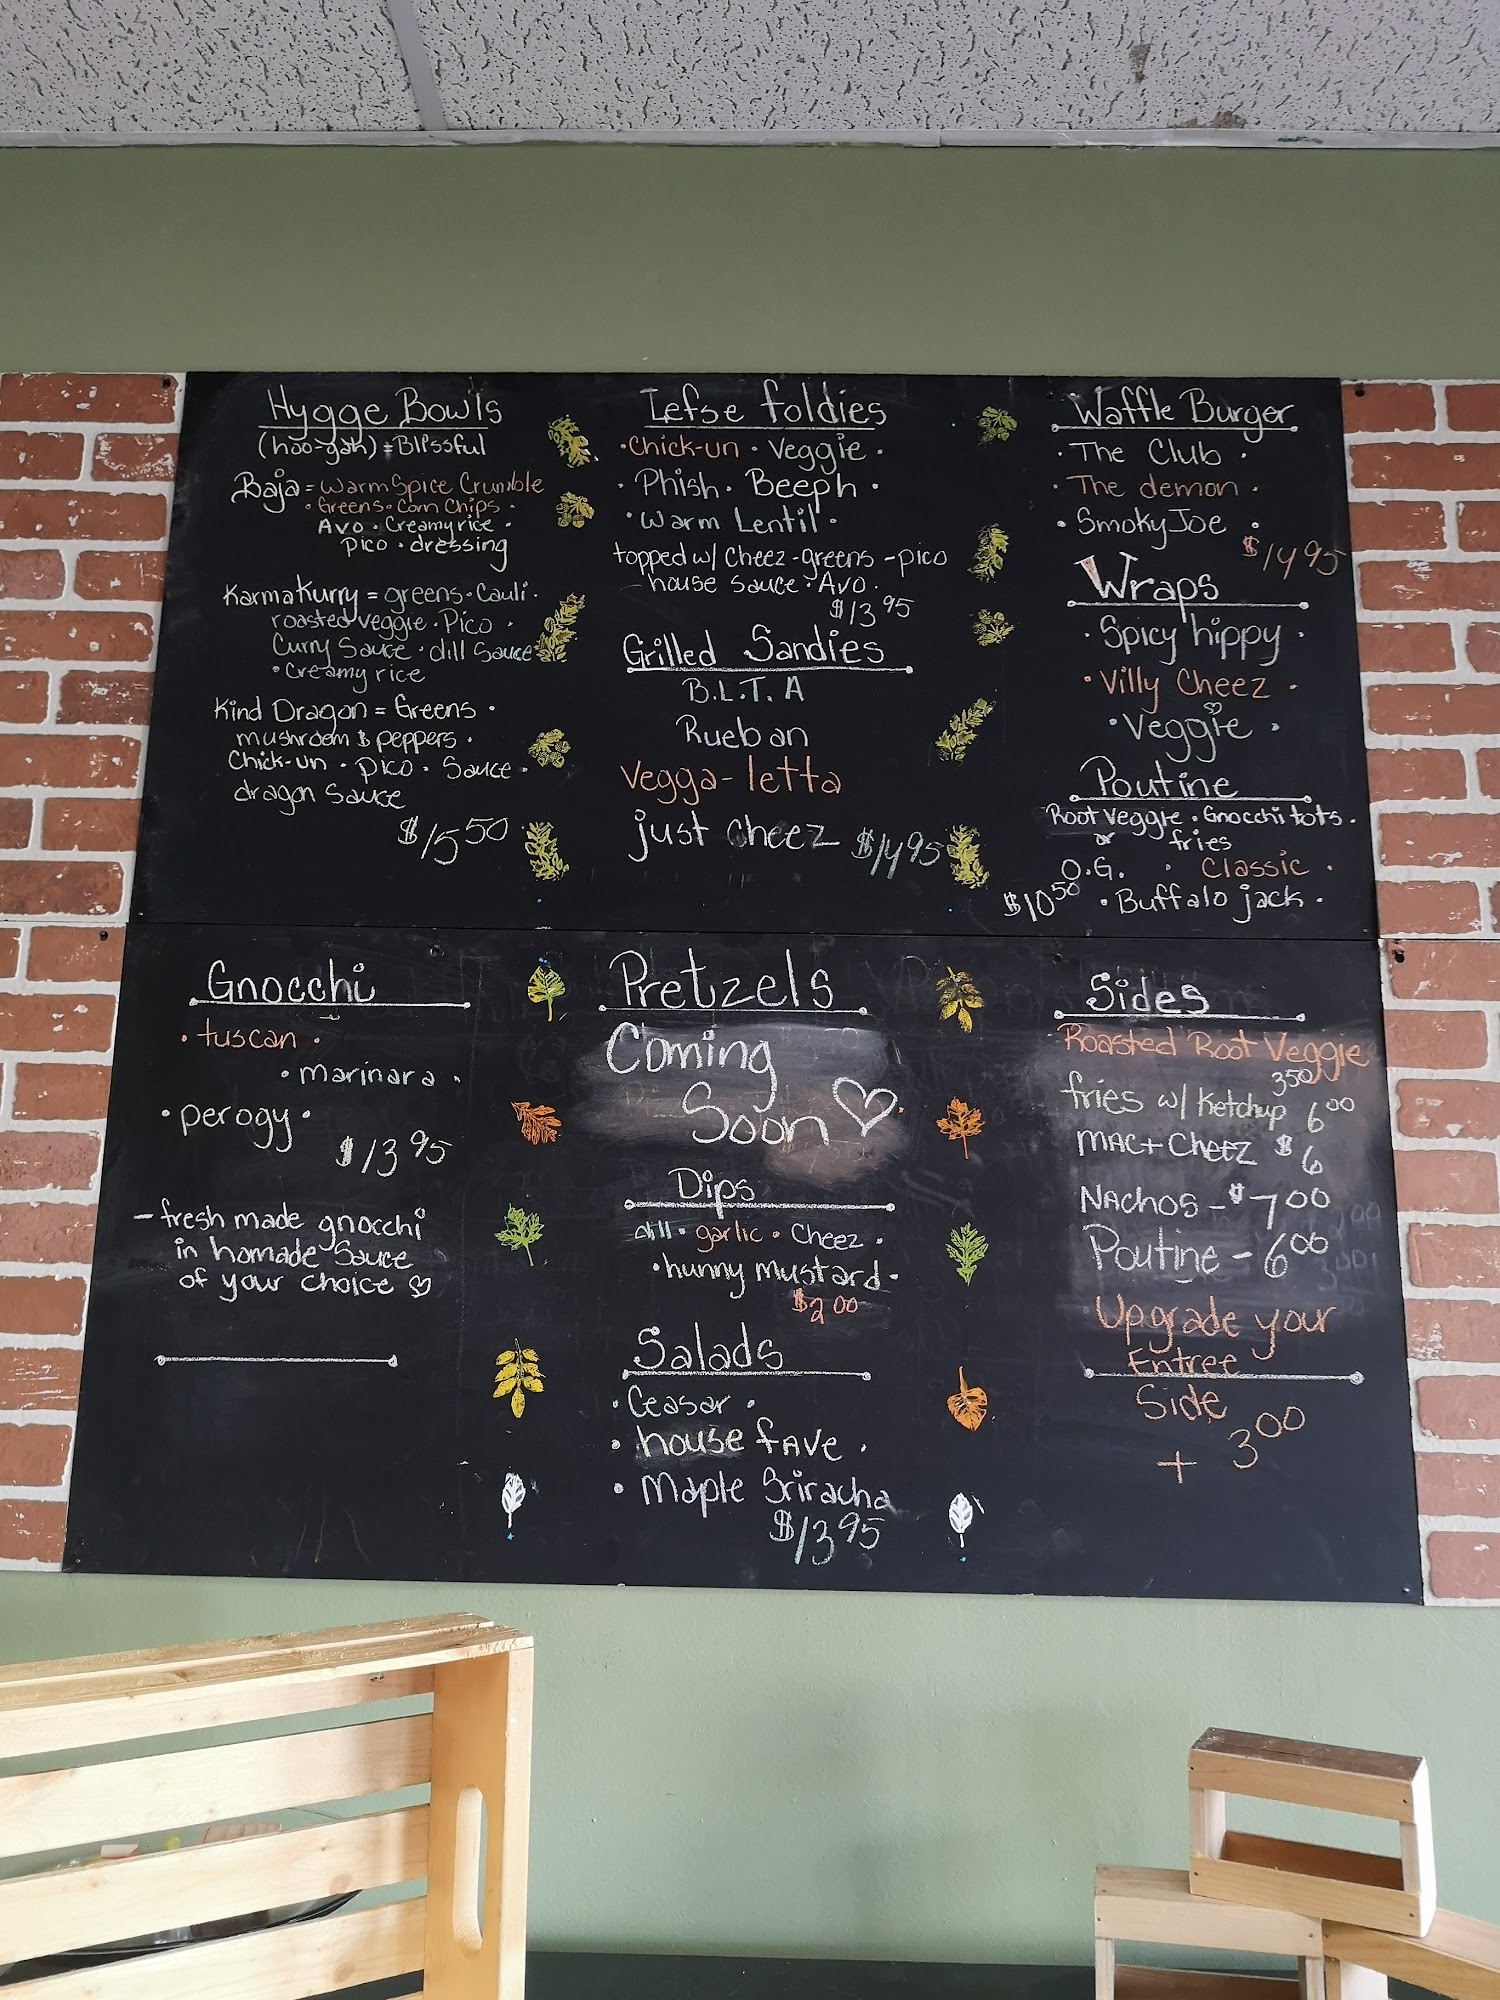 Hygge Bowls
(hoo-gah) = Blissful
Baja = Warm Spice Crumble
• Greens • Corn Chips •
Avo • Creamy rice •
Pico • dressing
Karma Kurry = greens • Cauli •
roasted veggie • Pico •
Curry Sauce • dill Sauce
• Creamy rice
Kind Dragon = Greens •
mushroom & peppers •
Chick-un • Pico • Sauce •
dragon Sauce
$15 50
Lefse foldies
• Chick-un • Veggie •
• Phish • Beeph •
• Warm Lentil •
topped w/ Cheez - greens - pico
- house sauce • Avo •
$13 95
Grilled Sandies
B.L.T. A
Rueban
Vegga-letta
just Cheez $14 95
Waffle Burger
• The Club •
• The demon •
• Smoky Joe •
$14 95
Wraps
• Spicy hippy •
• Villy Cheez •
• Veggie •
Poutine
Root Veggie • Gnocchi tots •
or fries
O.G. • Classic •
$10 50 • Buffalo jack •
Gnocchi
• tuscan •
• marinara •
• perogy •
$13 95
- fresh made gnocchi
in homade Sauce
of your choice
Pretzels
Coming
Soon
Dips
dill • garlic • Cheez •
• hunny mustard •
$2 00
Salads
• Ceasar •
• house fAVe •
• Maple Sriracha
$13 95
Sides
Roasted Root Veggie
3 50
fries w/ Ketchup 6 00
MAC + Cheez $6
NACHOS - $7 00
Poutine - 6 00
Upgrade your
Entree
Side
+ 3 00